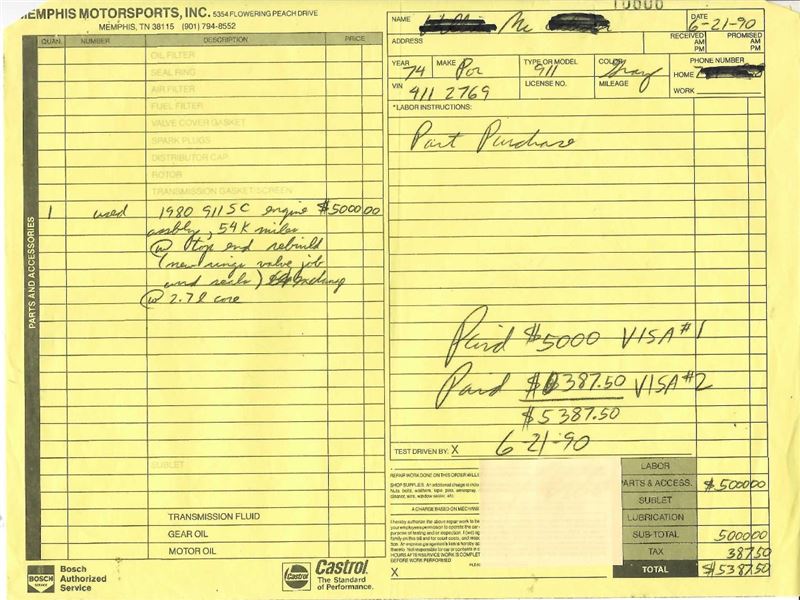 MEMPHIS MOTORSPORTS, INC. 5354 FLOWERING PEACH DRIVE
MEMPHIS, TN 38115 (901) 794-8552
QUAN. NUMBER DESCRIPTION PRICE
OIL FILTER
SEAL RING
AIR FILTER
FUEL FILTER
VALVE COVER GASKET
SPARK PLUGS
DISTRIBUTOR CAP
ROTOR
TRANSMISSION GASKET/SCREEN
PARTS AND ACCESSORIES
1 used 1980 911SC engine $5000 00
assbly, 54K miles
@ top end rebuild
(new rings valve job
and seals) exchang
@ 2.7 l core
SUBLET
TRANSMISSION FLUID
GEAR OIL
MOTOR OIL
BOSCH
SERVICE
Bosch
Authorized
Service
Castrol
Castrol
The Standard
of Performance.
NAME Mc
DATE 6-21-90
ADDRESS
RECEIVED AM PM
PROMISED AM PM
YEAR 74 MAKE Por TYPE OR MODEL 911 COLOR Gray
PHONE NUMBER
HOME
VIN 911 2769 LICENSE NO. MILEAGE
WORK
*LABOR INSTRUCTIONS:
Part Purchase
Paid $5000 VISA #1
Paid $387.50 VISA #2
$5387.50
TEST DRIVEN BY: X 6-21-90
REPAIR WORK DONE ON THIS ORDER WILL
SHOP SUPPLIES: An additional charge is
A CHARGE BASED ON MECHANI
I hereby authorize the above repair work to be
BEFORE WORK PERFORMED
X
LABOR
PARTS & ACCESS. $5000 00
SUBLET
LUBRICATION
SUB-TOTAL 5000 00
TAX 387 50
TOTAL $5387 50